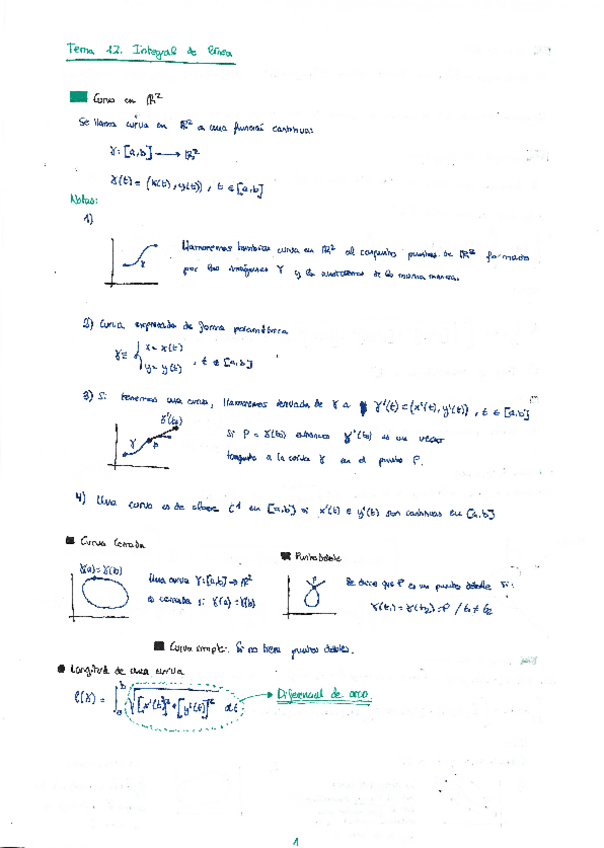 Tema 12. Integral de línea
Curva en ℝ²
Se llama curva en ℝ² a una función continua:
γ: [a,b] ⟶ ℝ²
γ(t) = (x(t), y(t)), t ∈ [a,b]
Notas:
1)
γ
Llamaremos también curva en ℝ² al conjunto puntos de ℝ² formado
por las imágenes γ y la de la misma manera.
2) Curva expresada de forma paramétrica
γ ≡ { x = x(t)
y = y(t) , t ∈ [a,b]
3) Si tenemos una curva, llamaremos derivada de γ a γ'(t) = (x'(t), y'(t)), t ∈ [a,b]
γ'(t₀)
γ P
Si P = γ(t₀) entonces γ'(t₀) es un vector
tangente a la curva γ en el punto P.
4) Una curva es de clase C¹ en [a,b] si x'(t) e y'(t) son continuas en [a,b]
Curva Cerrada
γ(a) = γ(b)
Una curva γ: [a,b] → ℝ²
es cerrada si γ(a) = γ(b)
Punto doble
P
Se dice que P es un punto doble si:
γ(t₁) = γ(t₂) = P / t₁ ≠ t₂
Curva simple: Si no tiene puntos dobles.
Longitud de una curva
l(γ) = ∫ₐᵇ √([x'(t)]² + [y'(t)]²) dt → Diferencial de arco
1